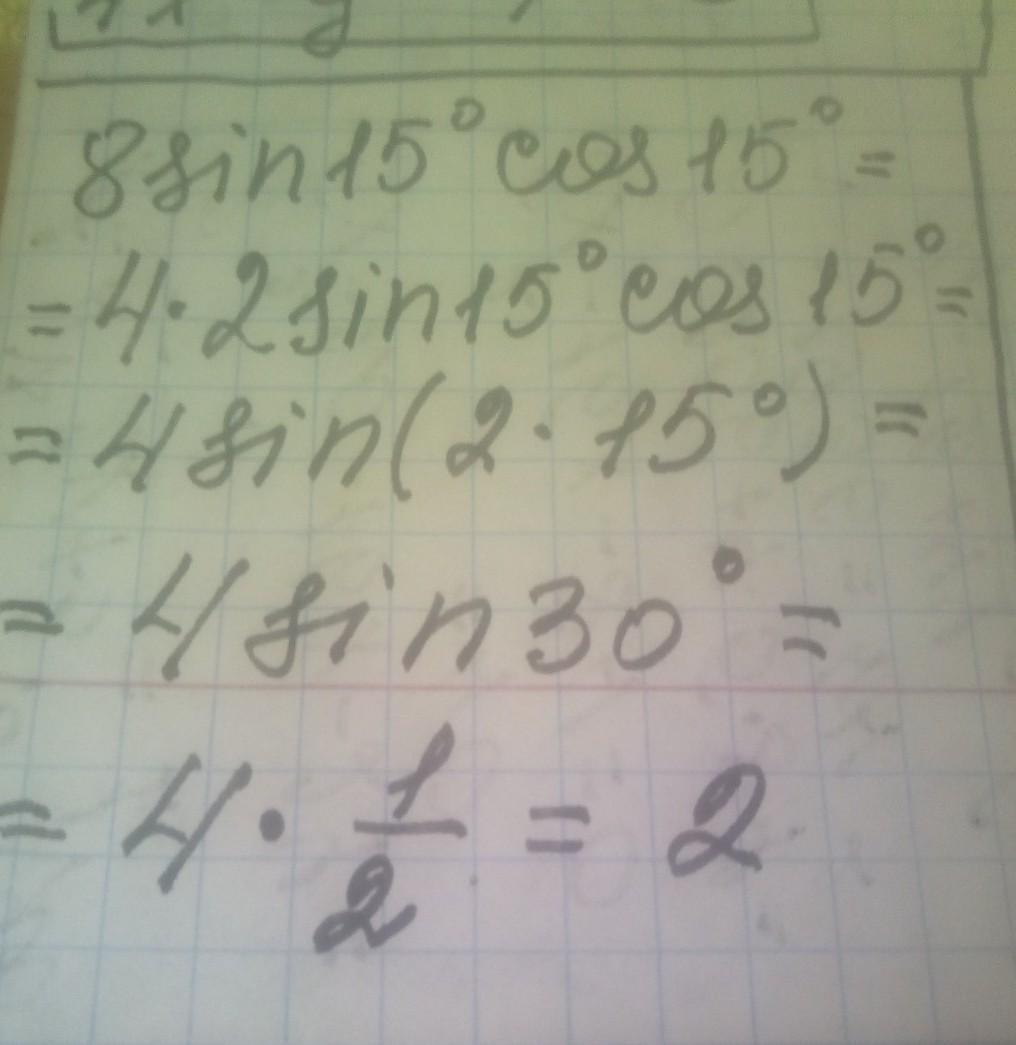 8 sin 15° cos 15° =
= 4 · 2 sin 15° cos 15° =
= 4 sin (2 · 15°) =
= 4 sin 30° =
= 4 · 1/2 = 2